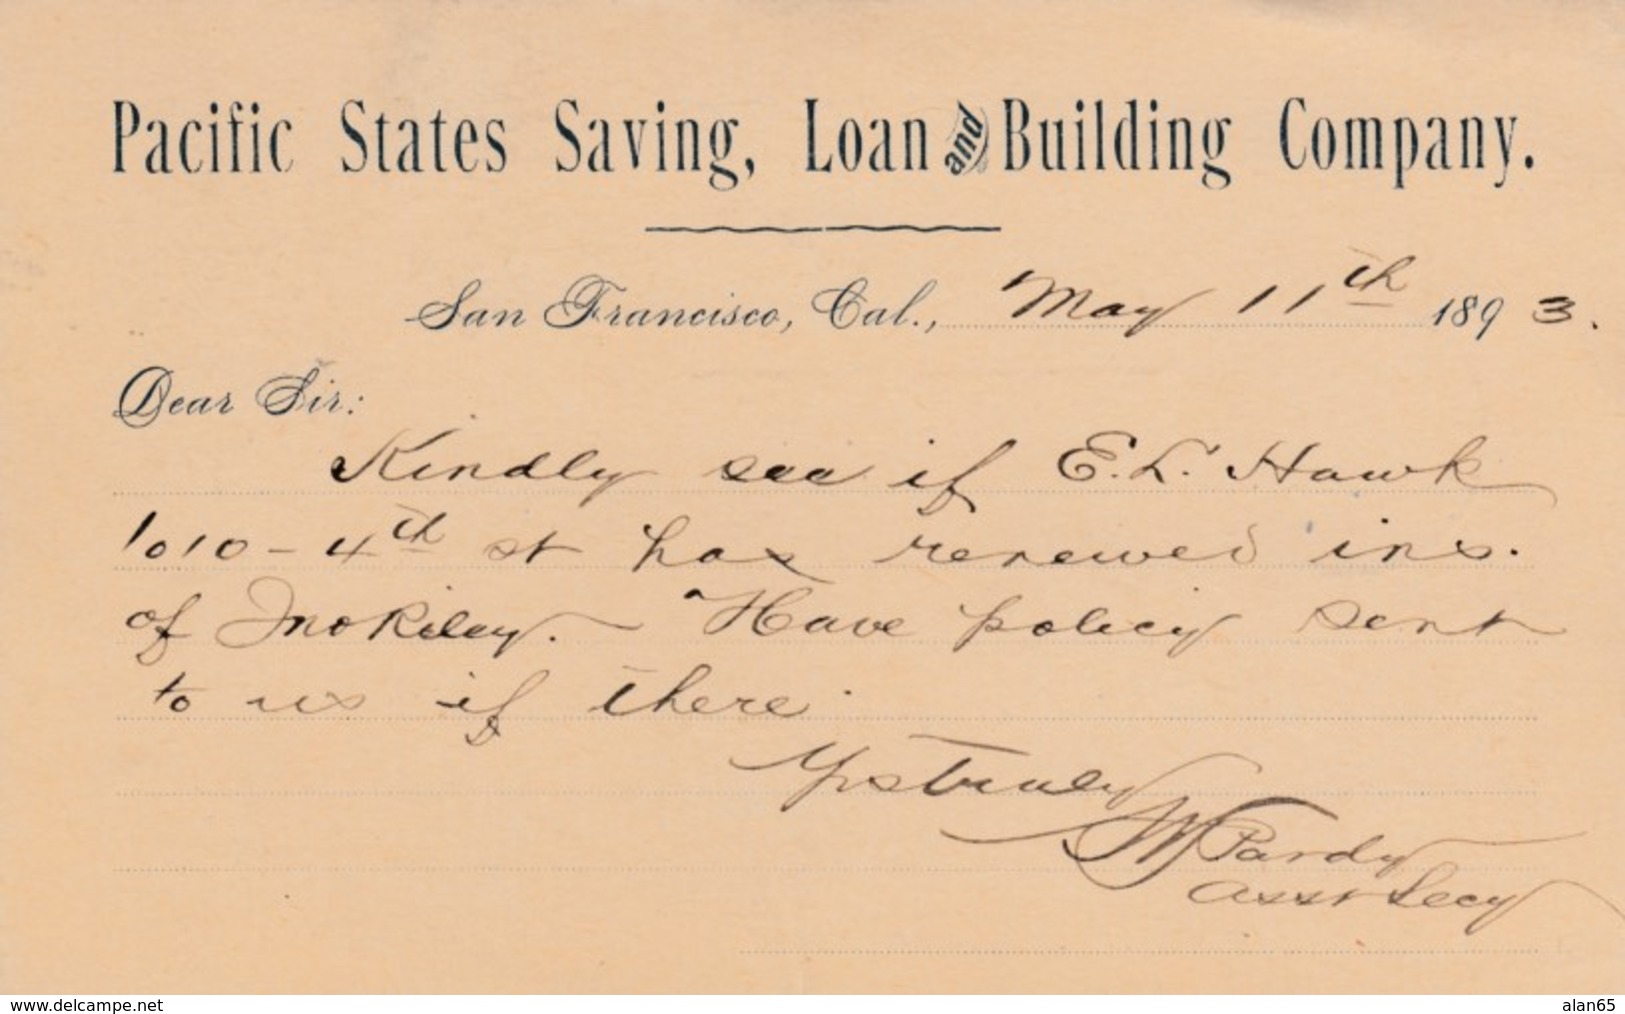 Pacific States Saving, Loan and Building Company.
San Francisco, Cal., May 11th 1893.
Dear Sir:
Kindly see if E. L. Hawk
1010 - 4th st has renewed ins.
of Jno Riley. - Have policy sent
to us if there.
Yrs truly
W Pardy
Asst Secy
www.delcampe.net
alan65